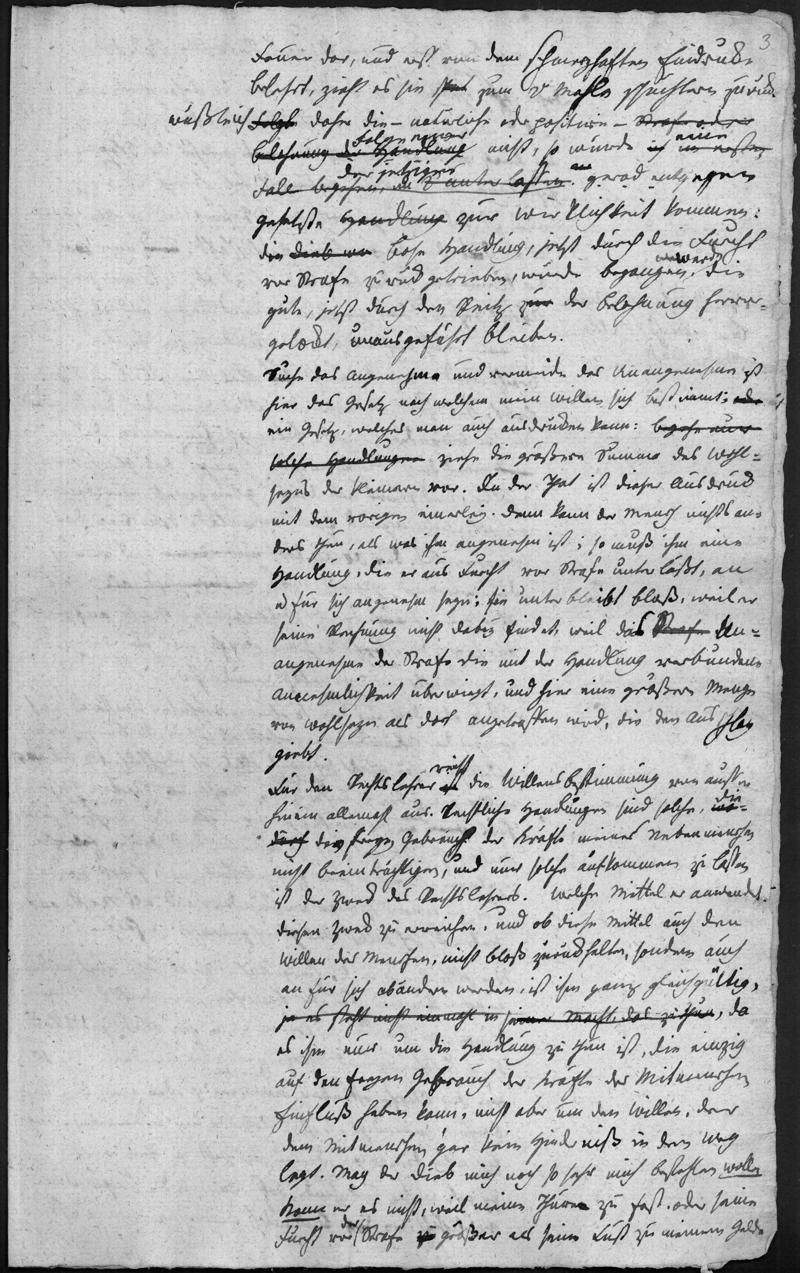 3
Feuer dar, und erst von dem schmerzhaften Eindrucke
belehrt, zieht es sie zum 2 Mahle schüchtern zurück.
daher die – natürliche oder positive – Strafe oder
Belohnung der Handlung nicht, so würde ich eine
der jetzigen
Fall begehen, unterlassen gerad entgegen
gesetzte Handlung zur Wirklichkeit kommen:
die bose Handlung, jetzt durch die Furcht
vor Strafe zurük getrieben, würde begangen werden, die
gute, jetzt durch den Reitz zur der Belohnung hervor-
gelockt, unausgeführt bleiben.
Suche das Angenehme und vermeide das Unangenehme ist
hier das Gesetz nach welchem mein Willen sich bestimmt; oder
ein Gesetz, welches man auch ausdrucken kann: begehe nur
solche Handlungen ziehe die größere Summe des Wohl-
seyns der kleinern vor. In der That ist dieser Ausdruck
mit dem vorigen einerley. Denn kann der Mensch nichts an-
ders thun, als was ihm angenehm ist; so muß ihm eine
Handlung, die er aus Furcht vor Strafe unterläßt, an
u für sich angenehm seyn; sie unterbleibt bloß, weil er
seine Rechnung nicht dabey findet, weil das Strafe Un-
angenehme der Strafe die mit der Handlung verbundene
Annehmlichkeit überwiegt, und hier eine größere Menge
von Wohlseyn als dort angetroffen wird, die den Ausschlag
giebt.
Für den Rechtslehrer reicht die Willensbestimmung von aussen
hinein allemahl aus. Rechtliche Handlungen sind solche, die
durch den freyen Gebrauch der Kräfte meines Nebenmenschen
nicht beeinträchtigen, und nur solche aufkommen zu lassen
ist der Zweck des Rechtslehrers. Welche Mittel er anwendet,
diesen Zweck zu erreichen, und ob diese Mittel auch den
Willen der Menschen, nicht bloß zurückhalten, sondern auch
an für sich abändern werden, ist ihm ganz gleichgültig,
ja es steht nicht einmahl in seiner Macht, das zu thun, da
es ihm nur um die Handlung zu thun ist, die einzig
auf den freyen Gebrauch der Kräfte der Mitmenschen
Einfluß haben kann, nicht aber um den Willen, der
dem Mitmenschen gar kein Hinderniß in den Weg
legt. Mag der Dieb mich noch so sehr mich bestehlen wollen
kann er es nicht, weil meine Thüre zu fest, oder seine
Furcht vor der Strafe größer als seine Lust zu meinem Gelde